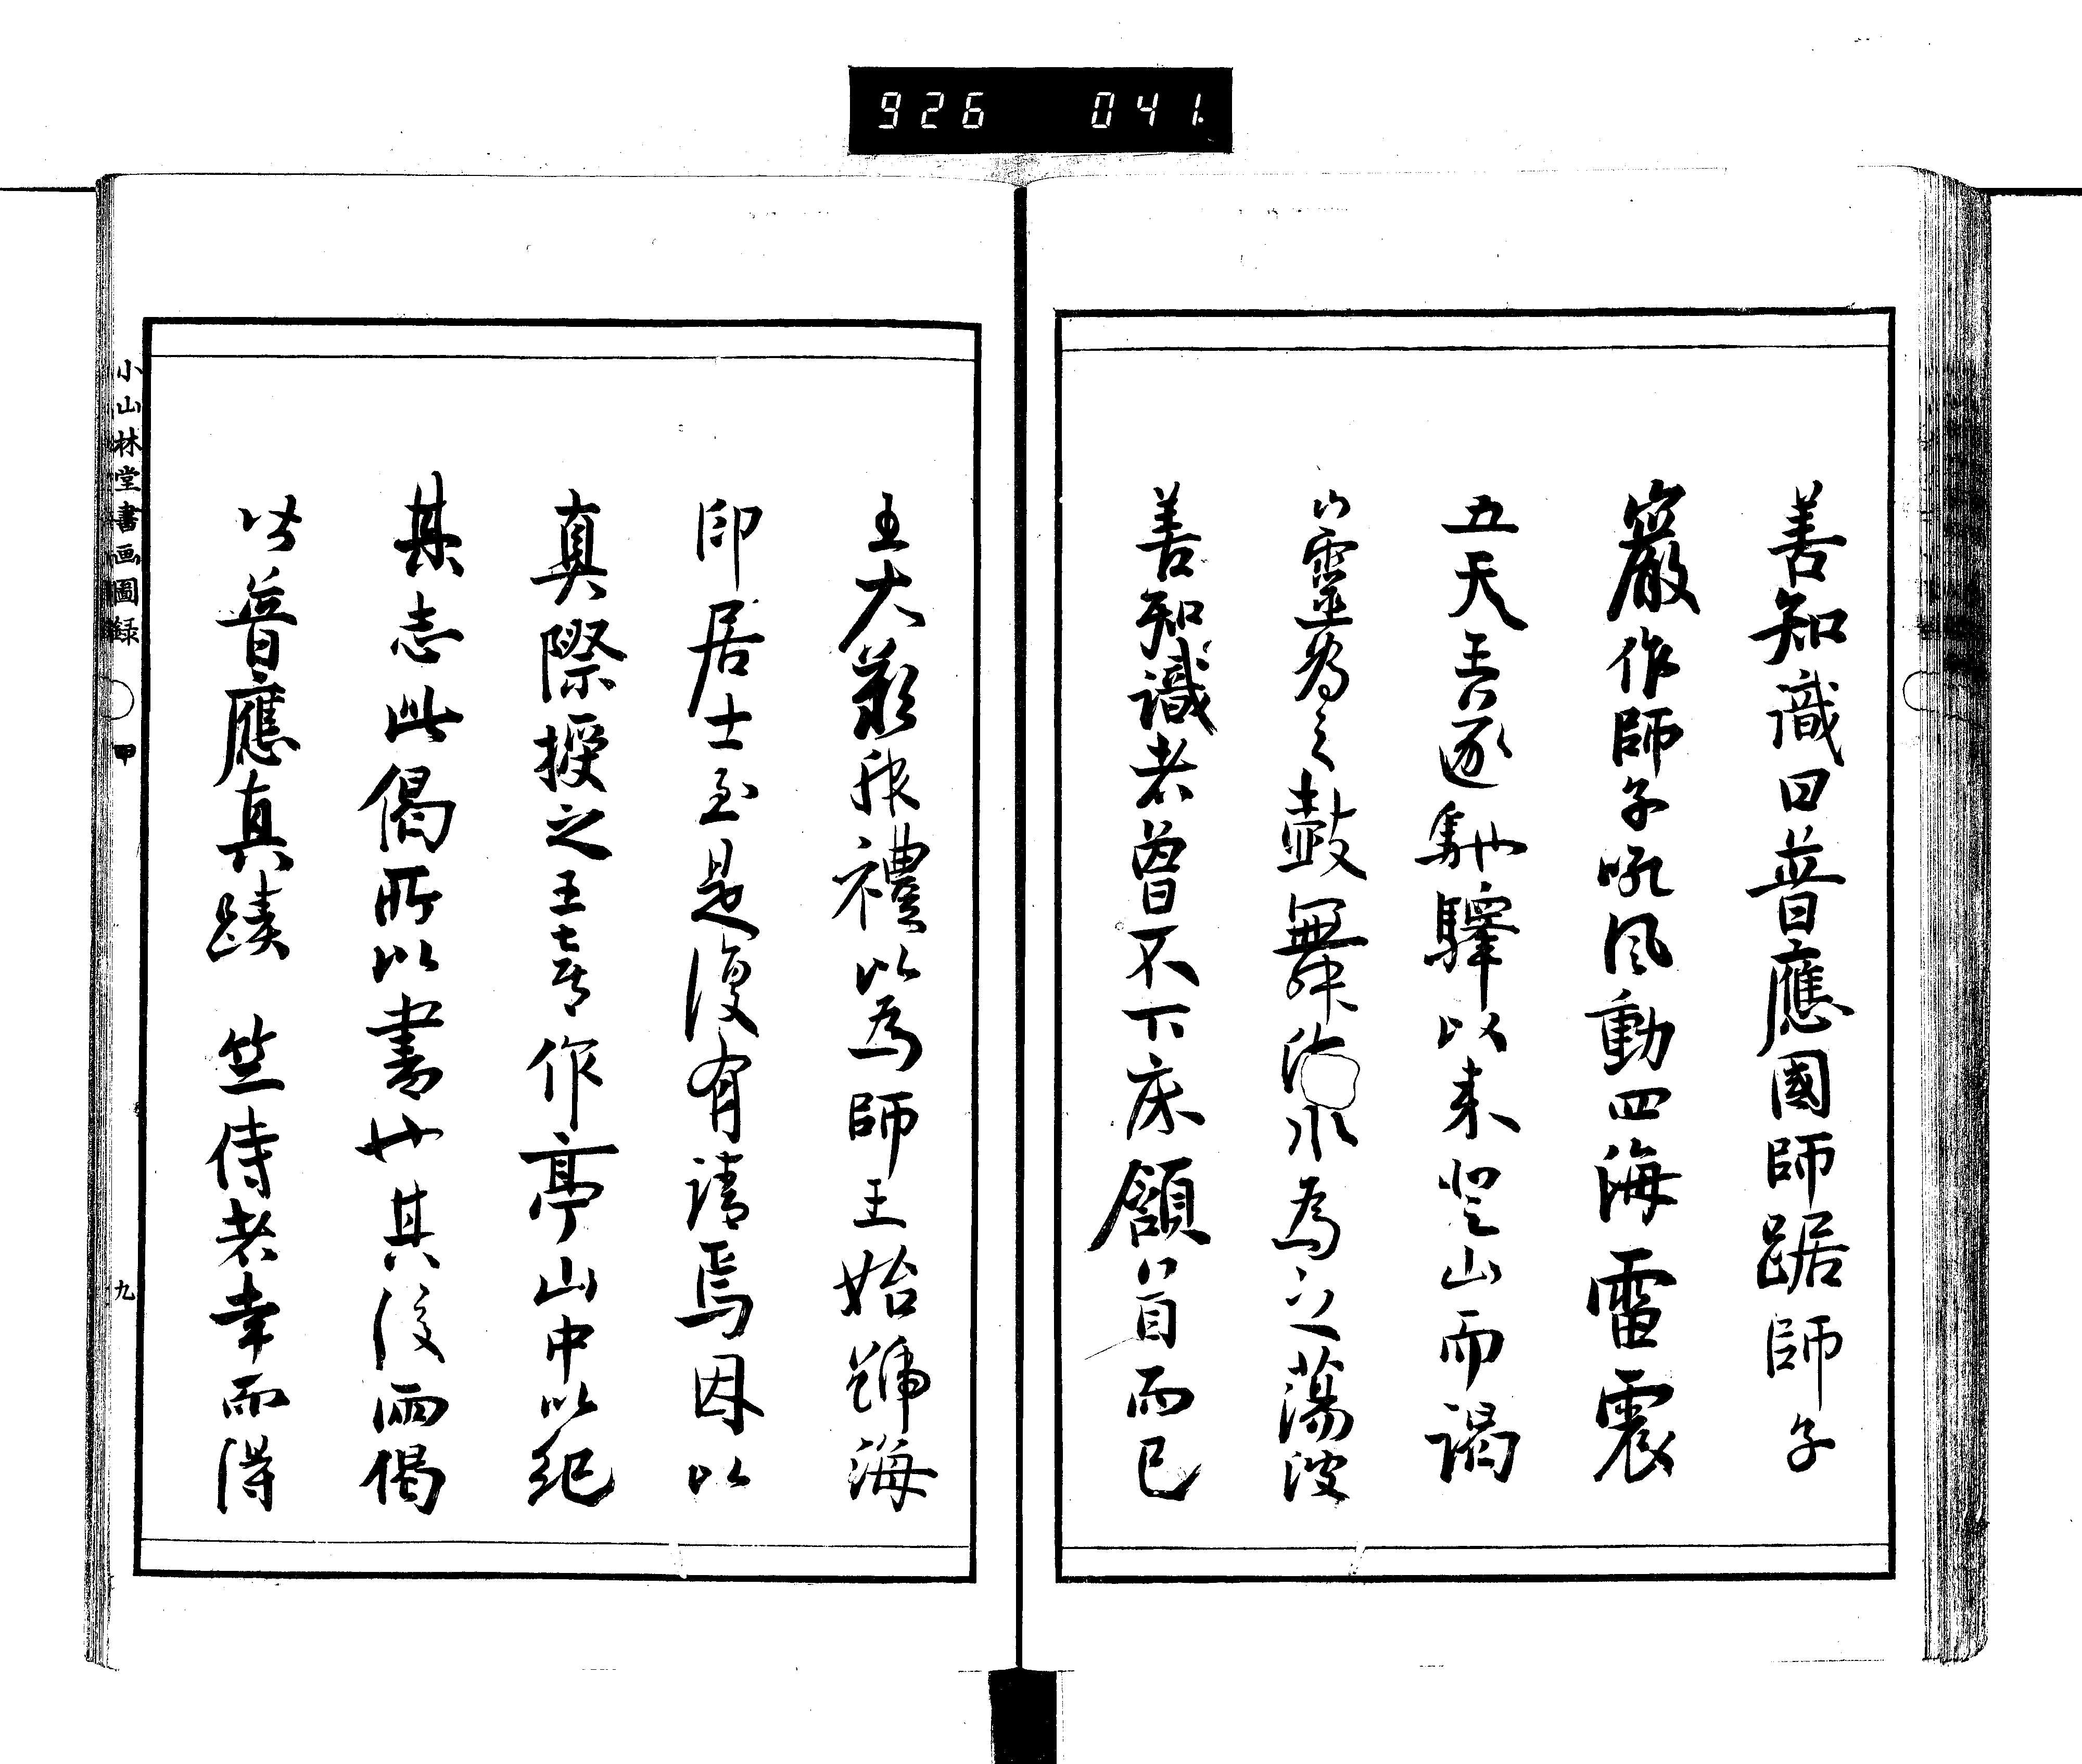 926 041.
善知識曰普應國師踞師子
巖作師子吼風動四海雷震
五天王馳驛以来登山而謁
山靈為之鼓舞海水為之蕩波
善知識者曾不下床頷首而已
王大歎服禮以為師王始號海
印居士至是復有請焉因以
真際授之王喜作亭山中以紀
其志此偈所以書也其後兩偈
皆普應真蹟 竺侍者幸而得
小山林堂書画圖録
甲
九